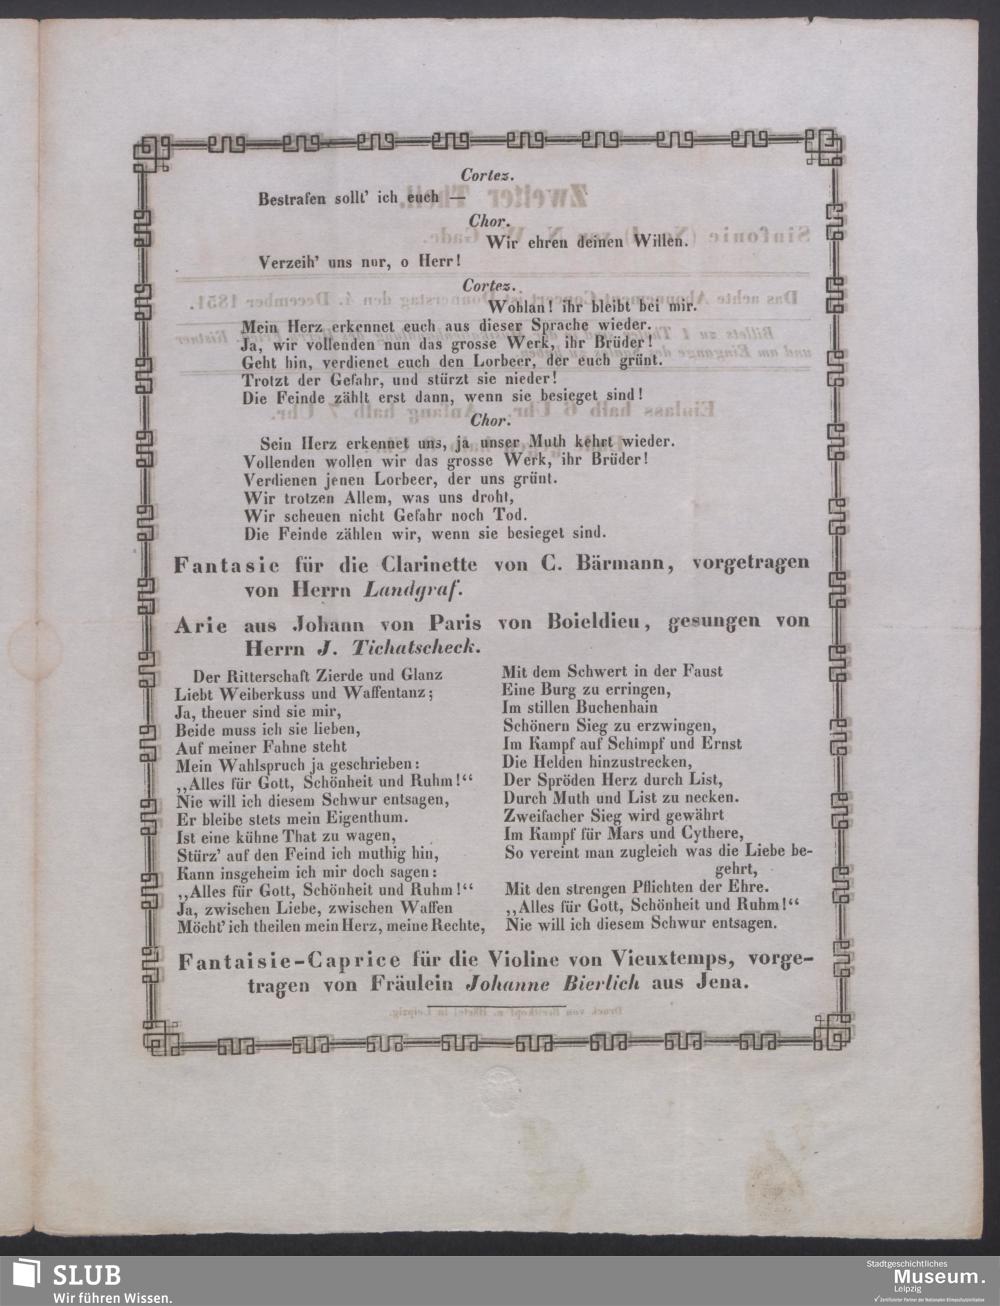 Cortez.
Bestrafen sollt' ich euch —
Chor.
Wir ehren deinen Willen.
Verzeih' uns nur, o Herr!
Cortez.
Wohlan! ihr bleibt bei mir.
Mein Herz erkennet euch aus dieser Sprache wieder.
Ja, wir vollenden nun das grosse Werk, ihr Brüder!
Geht hin, verdienet euch den Lorbeer, der euch grünt.
Trotzt der Gefahr, und stürzt sie nieder!
Die Feinde zählt erst dann, wenn sie besieget sind!
Chor.
Sein Herz erkennet uns, ja unser Muth kehrt wieder.
Vollenden wollen wir das grosse Werk, ihr Brüder!
Verdienen jenen Lorbeer, der uns grünt.
Wir trotzen Allem, was uns droht,
Wir scheuen nicht Gefahr noch Tod.
Die Feinde zählen wir, wenn sie besieget sind.
Fantasie für die Clarinette von C. Bärmann, vorgetragen
von Herrn Landgraf.
Arie aus Johann von Paris von Boieldieu, gesungen von
Herrn J. Tichatscheck.
Der Ritterschaft Zierde und Glanz
Liebt Weiberkuss und Waffentanz;
Ja, theuer sind sie mir,
Beide muss ich sie lieben,
Auf meiner Fahne steht
Mein Wahlspruch ja geschrieben:
„Alles für Gott, Schönheit und Ruhm!“
Nie will ich diesem Schwur entsagen,
Er bleibe stets mein Eigenthum.
Ist eine kühne That zu wagen,
Stürz' auf den Feind ich muthig hin,
Kann insgeheim ich mir doch sagen:
„Alles für Gott, Schönheit und Ruhm!“
Ja, zwischen Liebe, zwischen Waffen
Möcht' ich theilen mein Herz, meine Rechte,
Mit dem Schwert in der Faust
Eine Burg zu erringen,
Im stillen Buchenhain
Schönern Sieg zu erzwingen,
Im Kampf auf Schimpf und Ernst
Die Helden hinzustrecken,
Der Spröden Herz durch List,
Durch Muth und List zu necken.
Zweifacher Sieg wird gewährt
Im Kampf für Mars und Cythere,
So vereint man zugleich was die Liebe be-
gehrt,
Mit den strengen Pflichten der Ehre.
„Alles für Gott, Schönheit und Ruhm!“
Nie will ich diesem Schwur entsagen.
Fantaisie-Caprice für die Violine von Vieuxtemps, vorge-
tragen von Fräulein Johanne Bierlich aus Jena.
SLUB
Wir führen Wissen.
Stadtgeschichtliches
Museum.
Leipzig
Zertifizierter Partner der Nationalen Klimaschutzinitiative